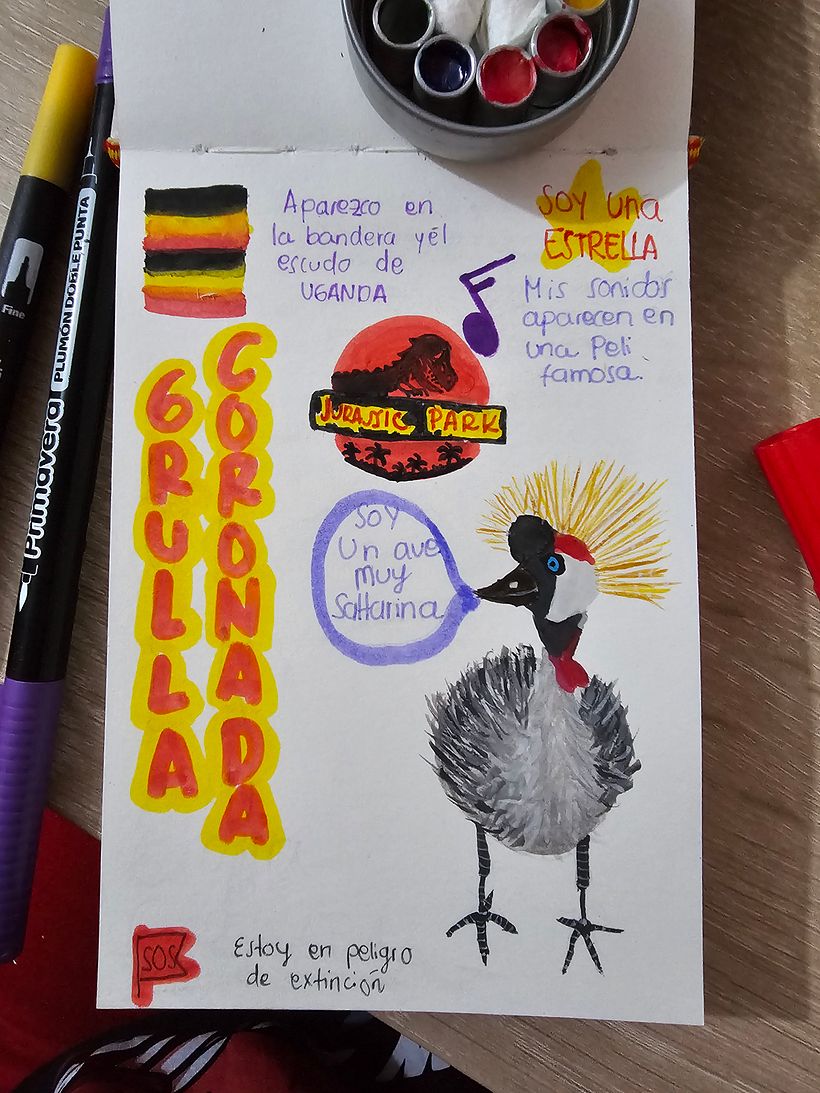 Aparezco en
la bandera y él
escudo de
UGANDA
SOY una
ESTRELLA
Mis sonidos
aparecen en
una Peli
famosa.
JURASSIC PARK
GRULLA
CORONADA
SOY
Un ave
muy
Saltarina
SOS
Estoy en peligro
de extinción
Fine
Primavera PLUMÓN DOBLE PUNTA